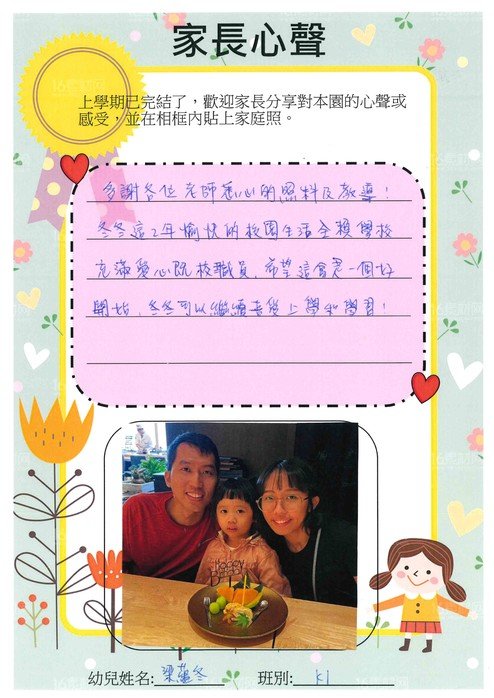 家長心聲
上學期已完結了，歡迎家長分享對本園的心聲或
感受，並在相框內貼上家庭照。
多謝各位老師悉心的照料及教導！
冬冬這2年愉快的校園生活全賴學校
充滿愛心既校職員，希望這會是一個好
開始，冬冬可以繼續喜愛上學和學習！
幼兒姓名: 梁蘊冬
班別: K1